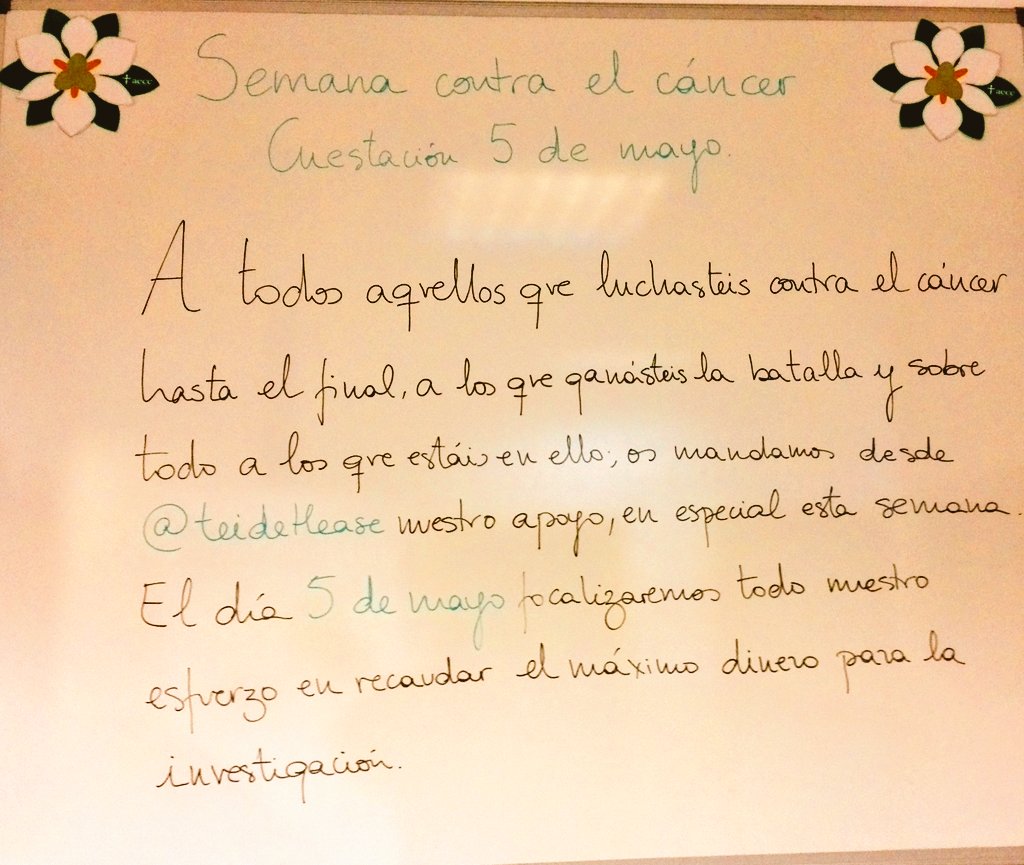 aecc
aecc
Semana contra el cáncer
Cuestación 5 de mayo.
A todos aquellos que luchasteis contra el cáncer
hasta el final, a los que ganásteis la batalla y sobre
todo a los que estáis en ello; os mandamos desde
@teidetlease nuestro apoyo, en especial esta semana.
El día 5 de mayo focalizaremos todo nuestro
esfuerzo en recaudar el máximo dinero para la
investigación.